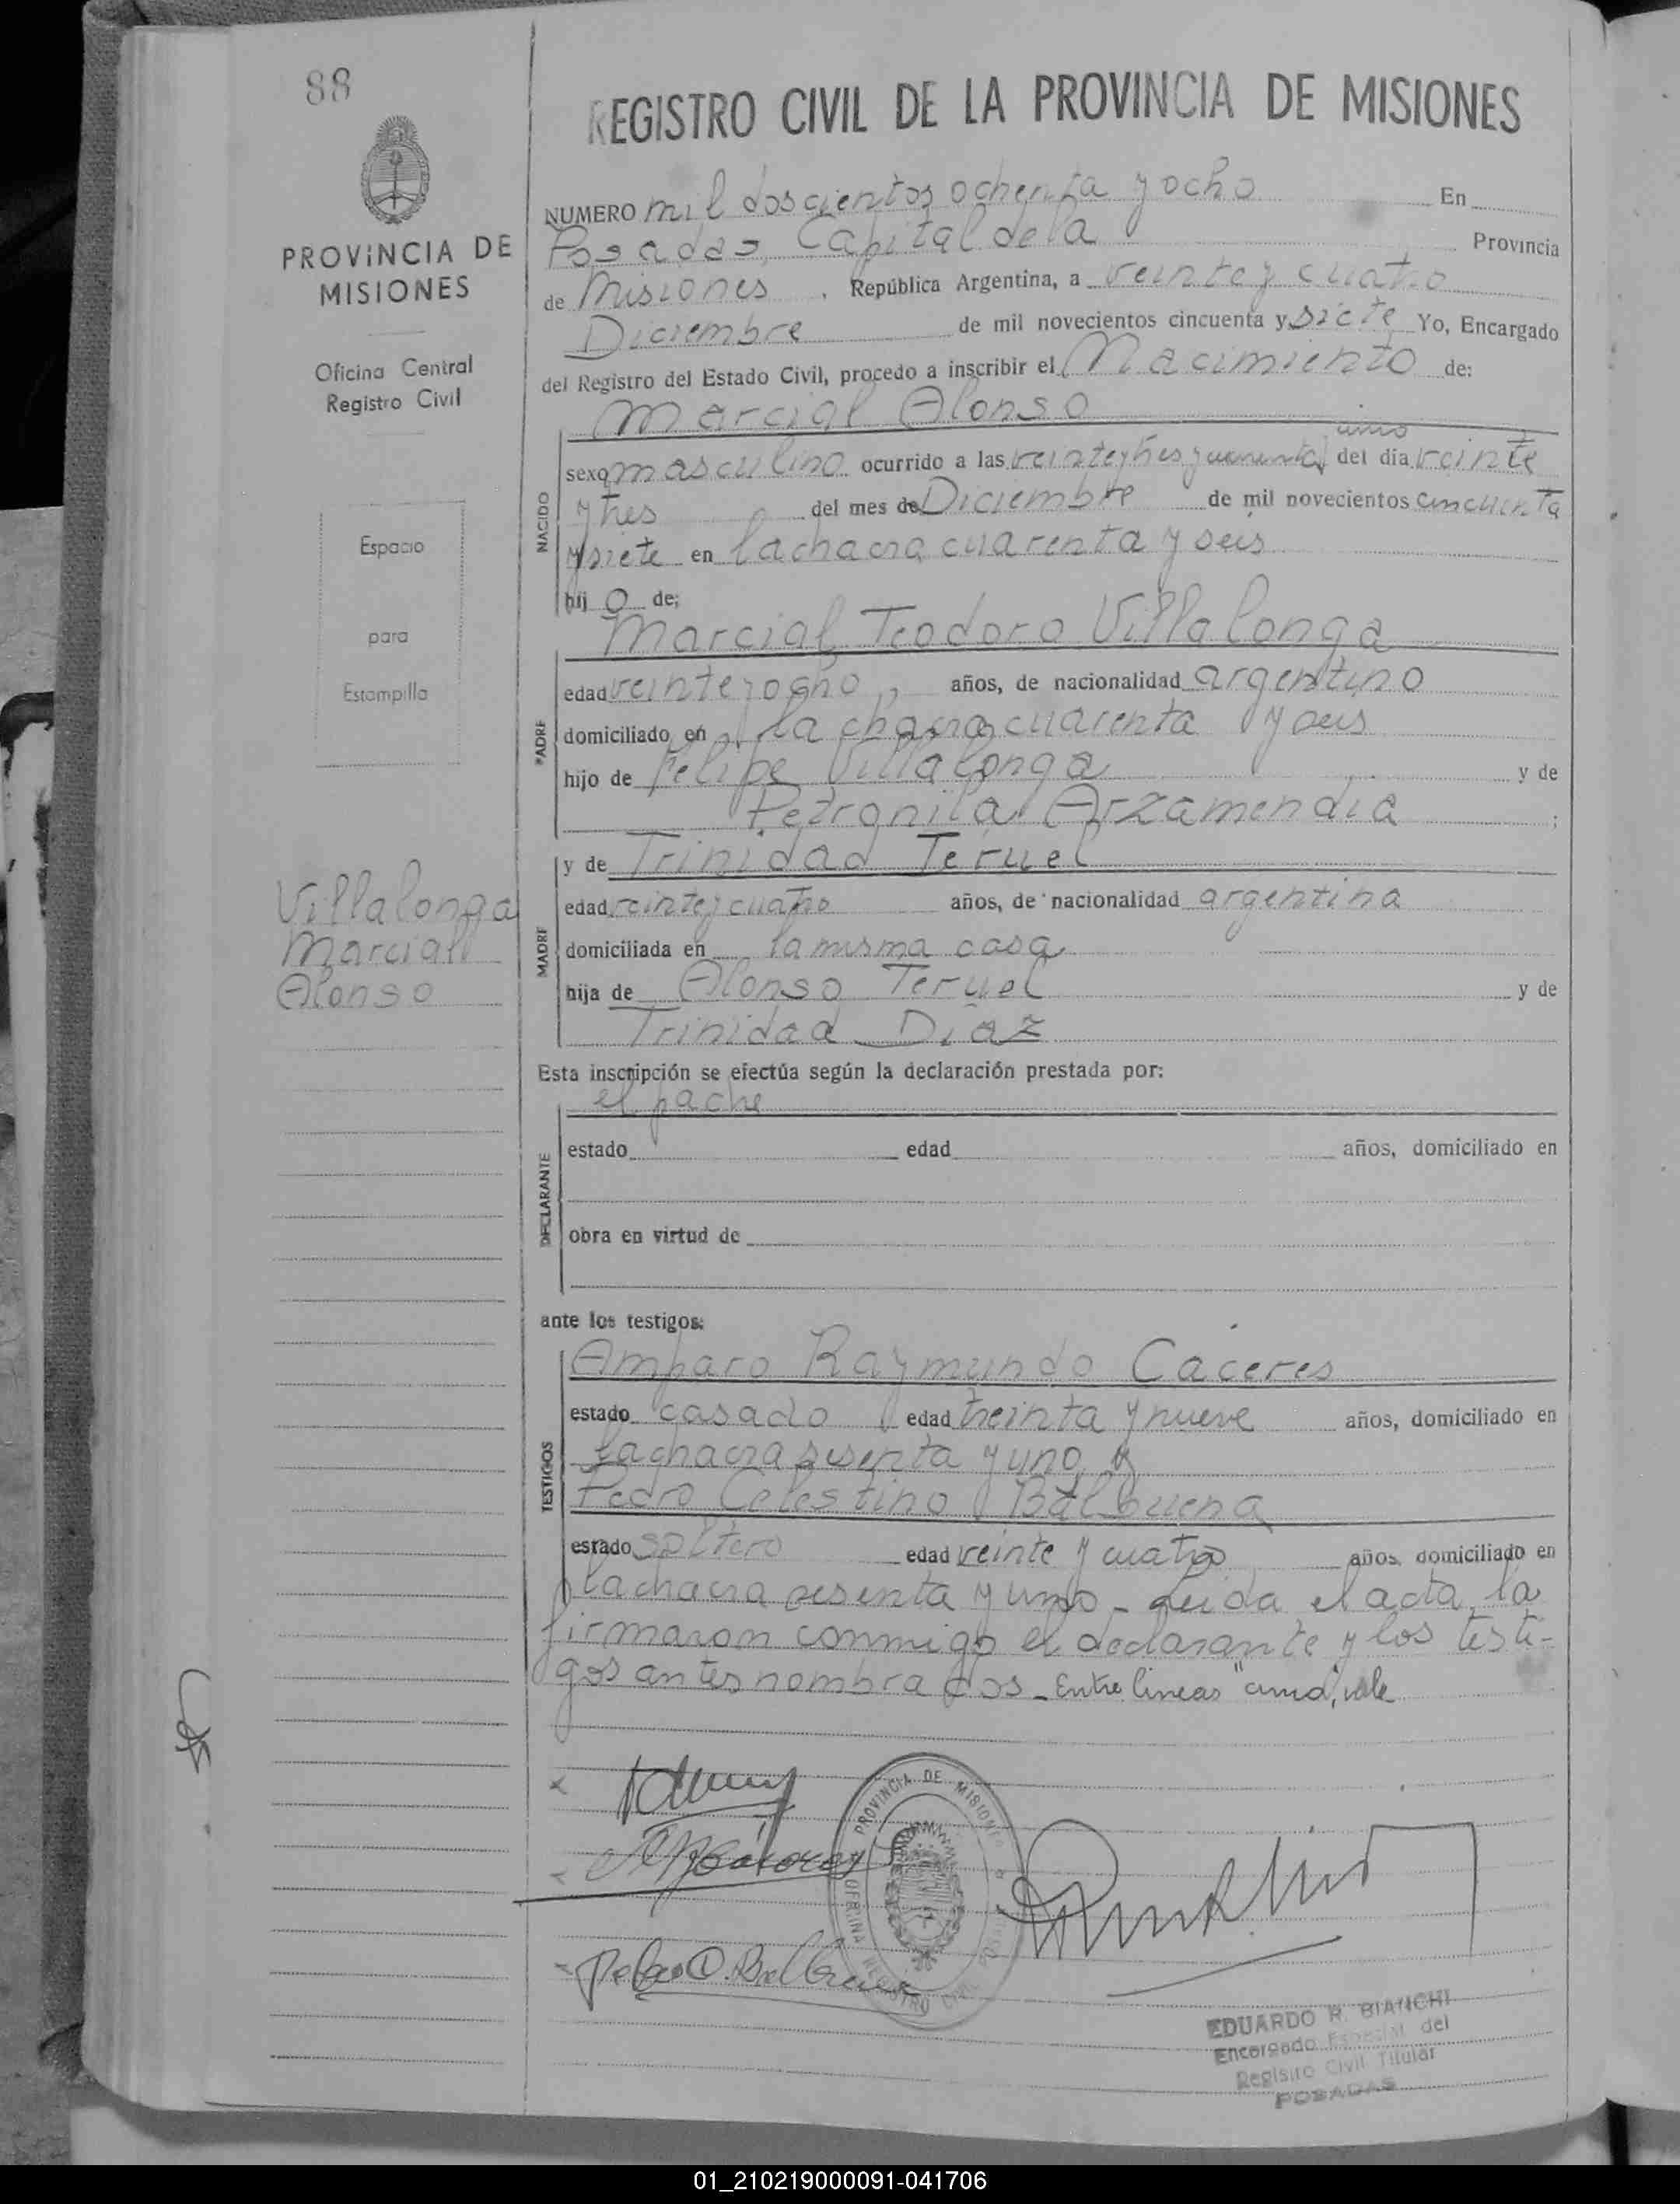 88
REGISTRO CIVIL DE LA PROVINCIA DE MISIONES
PROVINCIA DE
MISIONES
Oficina Central
Registro Civil
Espacio
para
Estampilla
Villalonga
Marcial
Alonso
NUMERO mil doscientos ochenta y ocho En
Posadas, Capital de la Provincia
de Misiones, República Argentina, a veinte y cuatro
Diciembre de mil novecientos cincuenta y siete Yo, Encargado
del Registro del Estado Civil, procedo a inscribir el Nacimiento de:
Marcial Alonso
NACIDO
sexo masculino ocurrido a las veinte y tres y cuarenta y del día veinte
y tres del mes de Diciembre de mil novecientos cincuenta
y siete en la chacra cuarenta y seis
hij o de;
Marcial Teodoro Villalonga
PADRE
edad veinte y ocho, años, de nacionalidad argentino
domiciliado en la chacra cuarenta y seis
hijo de Felipe Villalonga y de
Petronila Arzamendia ;
y de Trinidad Teruel
MADRE
edad veinte y cuatro años, de nacionalidad argentina
domiciliada en la misma casa
hija de Alonso Teruel y de
Trinidad Diaz
Esta inscripción se efectúa según la declaración prestada por:
el padre
DECLARANTE
estado edad años, domiciliado en
obra en virtud de
ante los testigos:
Amparo Raymundo Caceres
TESTIGOS
estado casado edad treinta y nueve años, domiciliado en
la chacra sesenta y uno, y
Pedro Celestino Balbuena
estado soltero edad veinte y cuatro años, domiciliado en
la chacra sesenta y uno - Leida el acta, la
firmaron conmigo el declarante y los testi-
gos antes nombrados - Entre lineas vale
PROVINCIA DE MISIONES
OFICINA REGISTRO CIVIL
EDUARDO R. BIANCHI
Encargado Especial del
Registro Civil Titular
POSADAS
01_210219000091-041706